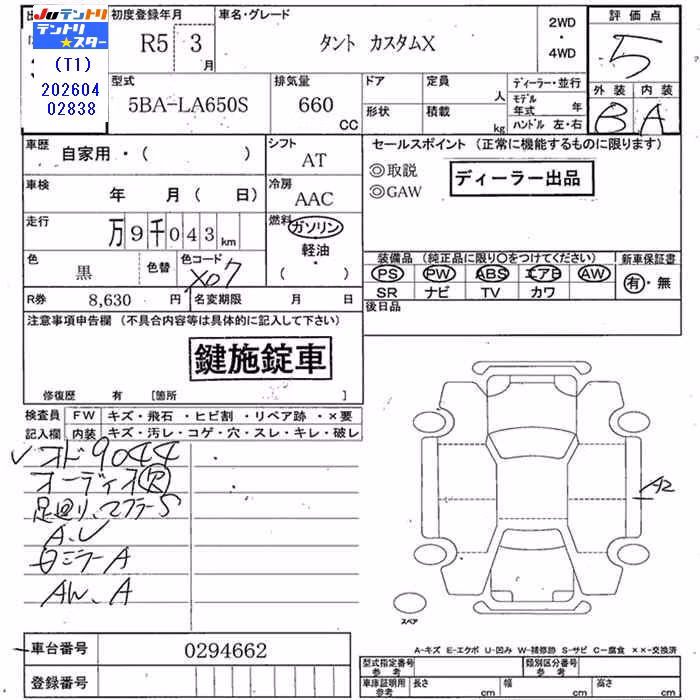 JUテントリ
テントリ★スター
(T1)
202604
02838
初度登録年月
R5 3月
車名・グレード
タント カスタムX
2WD
・
4WD
評価点
5
外装 内装
B A
型式
5BA-LA650S
排気量
660 CC
ドア
形状
定員 人
積載 kg
ディーラー・並行
モデル年式 年
ハンドル 左・右
車歴
自家用・( )
シフト
AT
セールスポイント (正常に機能するものに限ります)
◎取説
◎GAW
ディーラー出品
車検
年 月( 日)
冷房
AAC
走行
万9千043km
燃料
ガソリン
軽油・
( )
色
黒
色替
色コード
X07
装備品 (純正品に限り○をつけてください)
PS PW ABS エアB AW
SR ナビ TV カワ
新車保証書
有・無
R券 8,630 円
名変期限 月 日
後日品
注意事項申告欄 (不具合内容等は具体的に記入して下さい)
鍵施錠車
修復歴 有 [箇所 ]
検査員記入欄
FW キズ・飛石・ヒビ割・リペア跡・×要
内装 キズ・汚レ・コゲ・穴・スレ・キレ・破レ
✓オド9044
オーディオR
足廻り、マフラーS
A、U
日ミラーA
AW、A
A2
スペア
車台番号 0294662
登録番号
A-キズ E-エクボ U-凹み W-補修跡 S-サビ C-腐食 ××-交換済
型式指定番号 参考
類別区分番号 参考
車庫証明用 参考
長さ cm
幅 cm
高さ cm